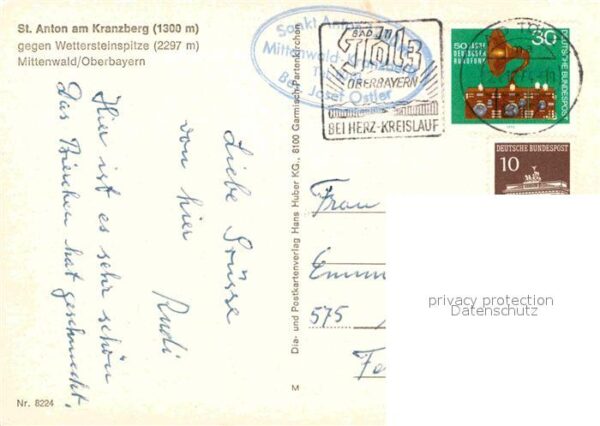 St. Anton am Kranzberg (1300 m)
gegen Wettersteinspitze (2297 m)
Mittenwald/Oberbayern
Hier ist es sehr schön
Das Bierchen hat geschmeckt.
Liebe Grüsse
von hier
Rudi
Nr. 8224
Dia- und Postkartenverlag Hans Huber KG., 8100 Garmisch-Partenkirchen
M
Sankt Anton
Mittenwald
Bes. Josef Ostler
BAD
Tölz
OBERBAYERN
BEI HERZ-KREISLAUF
50 JAHRE
DEUTSCHER
RUNDFUNK
30
DEUTSCHE BUNDESPOST
DEUTSCHE BUNDESPOST
10
Frau
575
privacy protection
Datenschutz